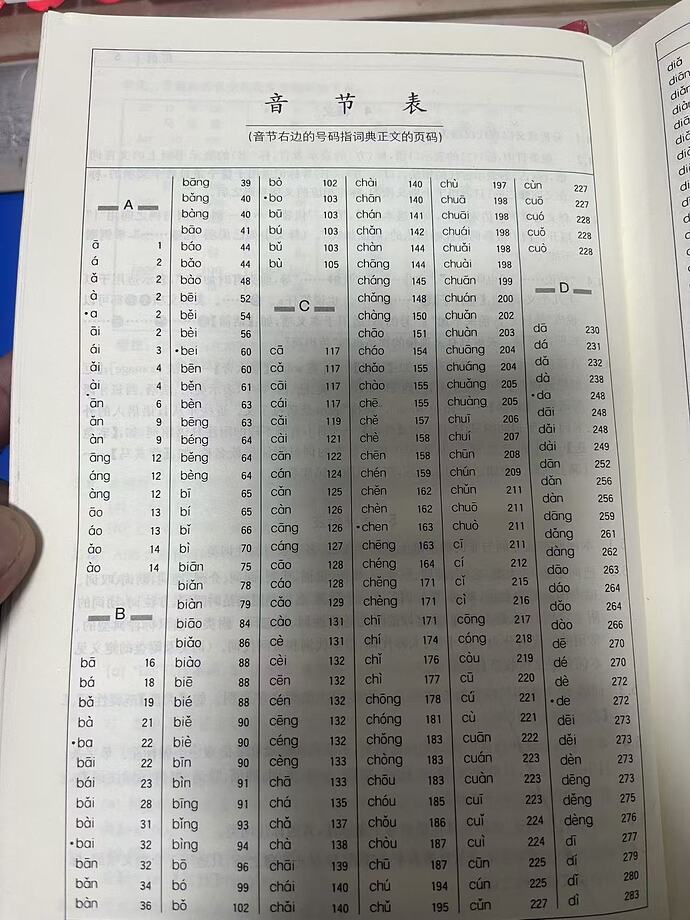 音节表
(音节右边的号码指词典正文的页码)
A
ā 1
á 2
ǎ 2
à 2
•a 2
āi 2
ái 3
ǎi 4
ài 4
ān 6
ǎn 9
àn 9
āng 12
áng 12
àng 12
āo 13
áo 13
ǎo 14
ào 14
B
bā 16
bá 18
bǎ 19
bà 21
•ba 22
bāi 22
bái 23
bǎi 28
bài 31
•bai 32
bān 32
bǎn 34
bàn 36
bāng 39
bǎng 40
bàng 40
bāo 41
báo 44
bǎo 44
bào 48
bēi 52
běi 54
bèi 56
•bei 60
bēn 60
běn 61
bèn 63
bēng 63
béng 64
běng 64
bèng 64
bī 65
bí 65
bǐ 66
bì 70
biān 75
biǎn 78
biàn 79
biāo 84
biǎo 86
biào 88
biē 88
bié 88
biě 90
biè 90
bīn 90
bìn 91
bīng 91
bǐng 93
bìng 94
bō 96
bó 99
bǒ 102
bò 102
•bo 103
bū 103
bú 103
bǔ 103
bù 105
C
cā 117
cǎ 117
cāi 117
cái 117
cǎi 119
cài 121
cān 122
cán 124
cǎn 125
càn 126
cāng 126
cáng 127
cāo 128
cáo 128
cǎo 129
cào 131
cè 131
cèi 132
cēn 132
cén 132
cēng 132
céng 132
cèng 133
chā 133
chá 135
chǎ 137
chà 138
chāi 139
chái 140
chǎi 140
chài 140
chān 140
chán 141
chǎn 142
chàn 144
chāng 144
cháng 145
chǎng 148
chàng 150
chāo 151
cháo 154
chǎo 155
chào 155
chē 155
chě 157
chè 158
chēn 158
chén 159
chěn 162
chèn 162
•chen 163
chēng 163
chéng 164
chěng 171
chèng 171
chī 171
chí 174
chǐ 176
chì 177
chōng 178
chóng 181
chǒng 183
chòng 183
chōu 183
chóu 185
chǒu 186
chòu 187
chū 187
chú 194
chǔ 195
chù 197
chuā 198
chuāi 198
chuái 198
chuǎi 198
chuài 198
chuān 199
chuán 200
chuǎn 202
chuàn 203
chuāng 204
chuáng 204
chuǎng 205
chuàng 205
chuī 206
chuí 207
chūn 208
chún 209
chǔn 211
chuō 211
chuò 211
cī 211
cí 212
cǐ 215
cì 216
cōng 217
cóng 218
còu 219
cū 220
cú 221
cù 221
cuān 222
cuán 223
cuàn 223
cuī 223
cuǐ 224
cuì 224
cūn 225
cún 225
cǔn 227
cùn 227
cuō 227
cuó 228
cuǒ 228
cuò 228
D
dā 230
dá 231
dǎ 232
dà 238
•da 248
dāi 248
dǎi 248
dài 249
dān 252
dǎn 256
dàn 256
dāng 259
dǎng 261
dàng 262
dāo 263
dáo 264
dǎo 264
dào 266
dē 270
dé 270
dè 272
•de 272
dēi 273
děi 273
dèn 273
dēng 273
děng 275
dèng 276
dī 277
dí 279
dǐ 280
dì 283